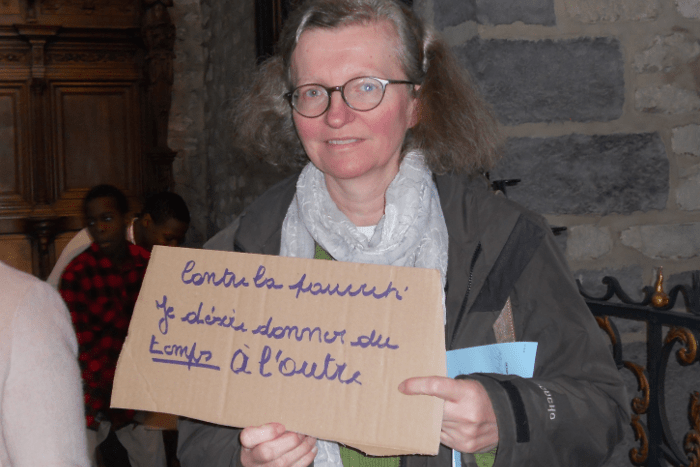 Contre la pauvreté
Je désire donner du
temps à l'autre